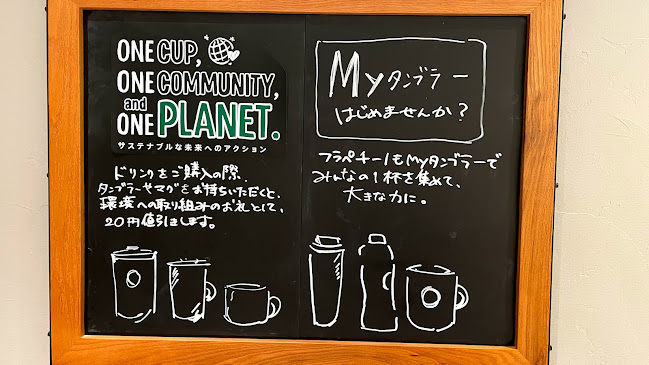 ONE CUP,
ONE COMMUNITY,
and
ONE PLANET.
サステナブルな未来へのアクション
ドリンクをご購入の際、
タンブラーやマグをお持ちいただくと、
環境への取り組みのお礼として、
20円値引きします。
Myタンブラー
はじめませんか？
フラペチーノもMyタンブラーで
みんなの1杯を集めて、
大きな力に。